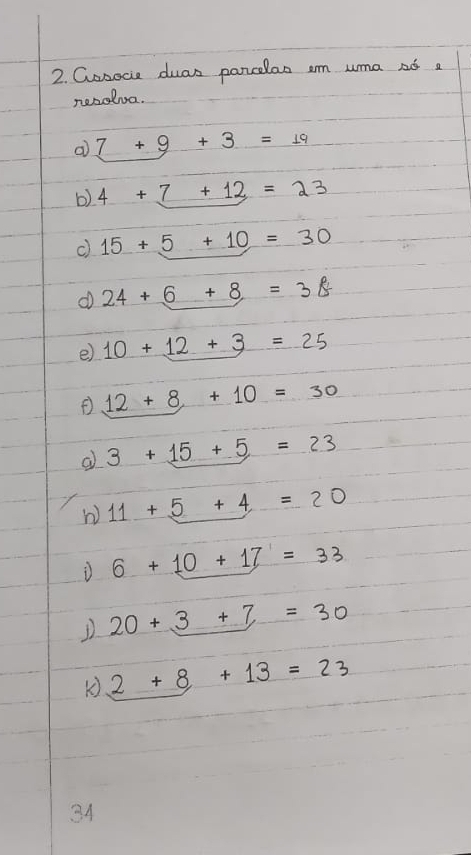 2. Associe duas parcelas em uma só e
resolva.
a) 7 + 9 + 3 = 19
b) 4 + 7 + 12 = 23
c) 15 + 5 + 10 = 30
d) 24 + 6 + 8 = 38
e) 10 + 12 + 3 = 25
f) 12 + 8 + 10 = 30
g) 3 + 15 + 5 = 23
h) 11 + 5 + 4 = 20
i) 6 + 10 + 17 = 33
j) 20 + 3 + 7 = 30
k) 2 + 8 + 13 = 23
34